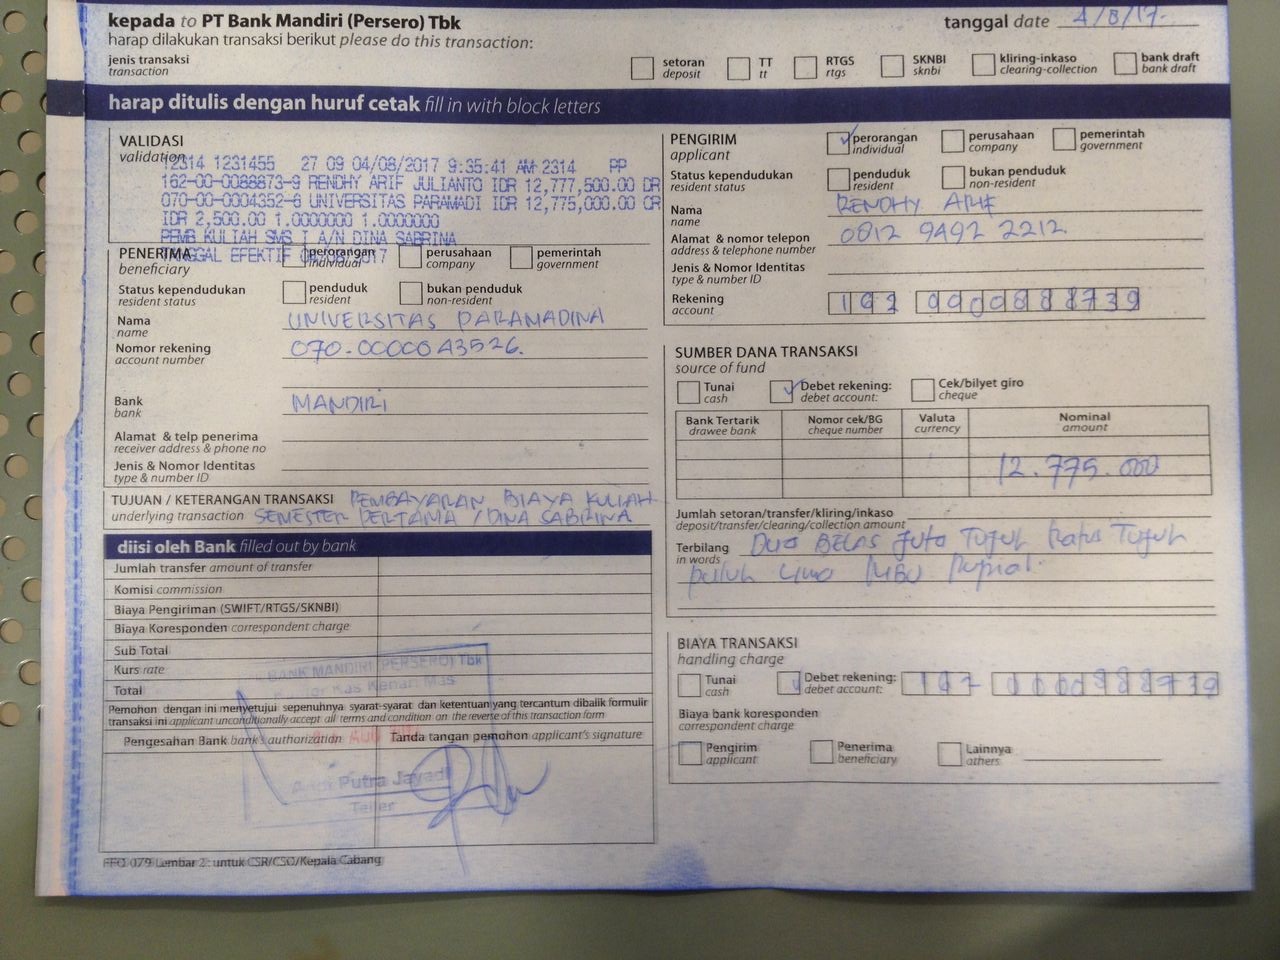 kepada to PT Bank Mandiri (Persero) Tbk
harap dilakukan transaksi berikut please do this transaction:
tanggal date 4/8/17.
jenis transaksi
transaction
setoran
deposit
TT
tt
RTGS
rtgs
SKNBI
sknbi
kliring-inkaso
clearing-collection
bank draft
bank draft
harap ditulis dengan huruf cetak fill in with block letters
VALIDASI
validation
12314 1231455 27 09 04/08/2017 9:35:41 AM 2314 PP
162-00-0088873-9 RENDHY ARIF JULIANTO IDR 12,777,500.00 DR
070-00-0004352-6 UNIVERSITAS PARAMADI IDR 12,775,000.00 CR
IDR 2,500.00 1.0000000 1.0000000
PEMB KULIAH SMS I A/N DINA SABRINA
TANGGAL EFEKTIF 04/08/2017
PENERIMA
beneficiary
perorangan
individual
perusahaan
company
pemerintah
government
Status kependudukan
resident status
penduduk
resident
bukan penduduk
non-resident
Nama
name
UNIVERSITAS PARAMADINA
Nomor rekening
account number
070-0000043526.
Bank
bank
MANDIRI
Alamat & telp penerima
receiver address & phone no
Jenis & Nomor Identitas
type & number ID
TUJUAN / KETERANGAN TRANSAKSI PEMBAYARAN BIAYA KULIAH
underlying transaction SEMESTER PERTAMA / DINA SABRINA
diisi oleh Bank filled out by bank
Jumlah transfer amount of transfer
Komisi commission
Biaya Pengiriman (SWIFT/RTGS/SKNBI)
Biaya Koresponden correspondent charge
Sub Total
Kurs rate
Total
BANK MANDIRI (PERSERO) Tbk
Kantor Kas Kenari Mas
Pemohon dengan ini menyetujui sepenuhnya syarat-syarat dan ketentuan yang tercantum dibalik formulir
transaksi ini applicant unconditionally accept all terms and condition on the reverse of this transaction form
Pengesahan Bank bank's authorization
AUG
Tanda tangan pemohon applicant's signature
Putra Jayadi
Teller
FFO 079 Lembar 2 : untuk CSR/CSO/Kepala Cabang
PENGIRIM
applicant
perorangan
individual
perusahaan
company
pemerintah
government
Status kependudukan
resident status
penduduk
resident
bukan penduduk
non-resident
Nama
name
RENDHY ARIF
Alamat & nomor telepon
address & telephone number
0812 9492 2212
Jenis & Nomor Identitas
type & number ID
Rekening
account
162 0000888739
SUMBER DANA TRANSAKSI
source of fund
Tunai
cash
Debet rekening:
debet account:
Cek/bilyet giro
cheque
Bank Tertarik
drawee bank
Nomor cek/BG
cheque number
Valuta
currency
Nominal
amount
12.775.000
Jumlah setoran/transfer/kliring/inkaso
deposit/transfer/clearing/collection amount
Terbilang
in words
Dua BELAS Juta Tujuh Ratus Tujuh
puluh Lima RIBU Rupiah.
BIAYA TRANSAKSI
handling charge
Tunai
cash
Debet rekening:
debet account:
162 0000888739
Biaya bank koresponden
correspondent charge
Pengirim
applicant
Penerima
beneficiary
Lainnya
others